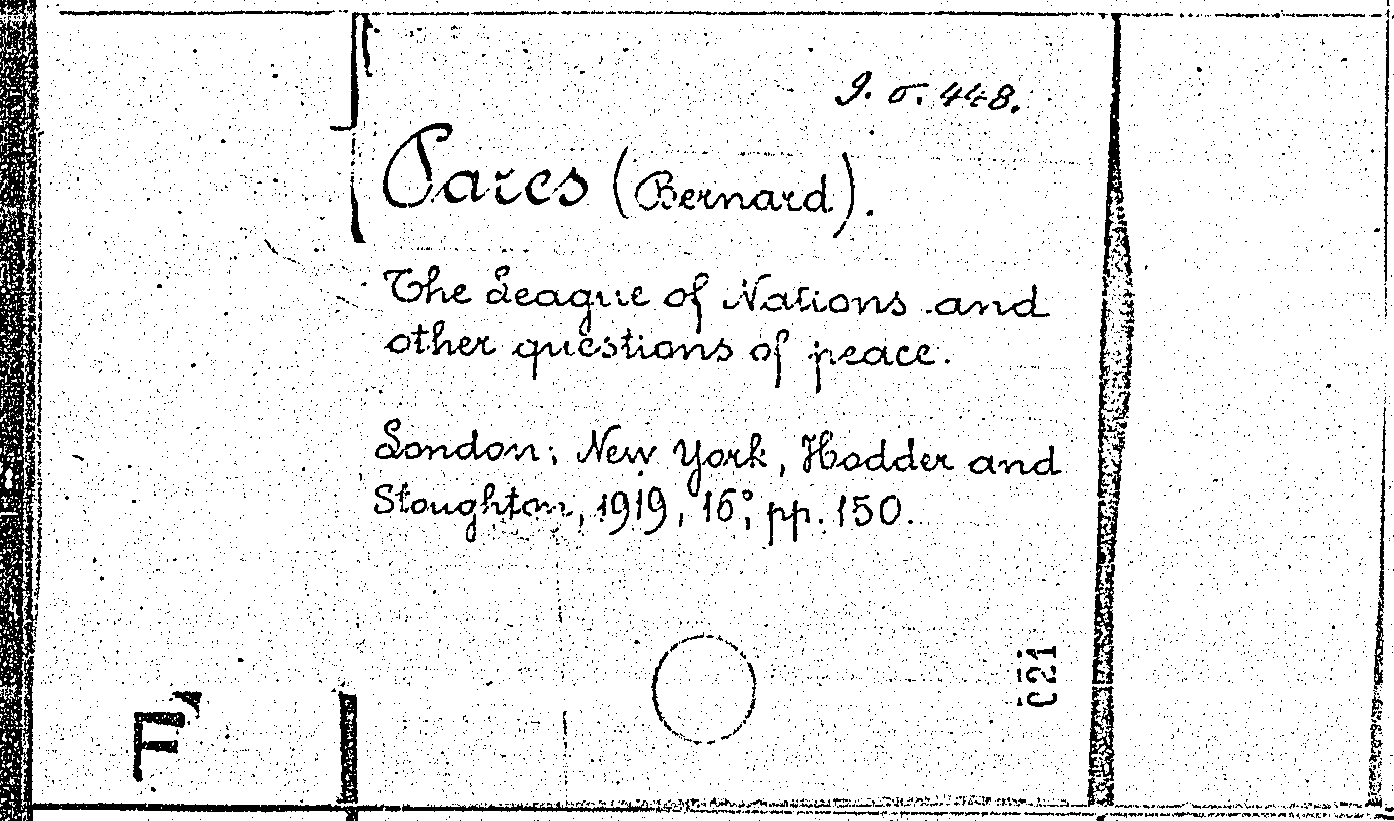 9. σ. 448.
Pares (Bernard).
The League of Nations and
other questions of peace.
London; New York, Hodder and
Stoughton, 1919, 16°, pp. 150.
021
F